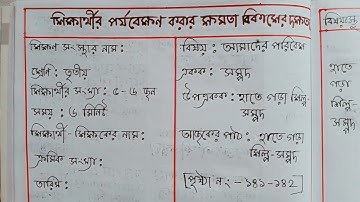 শিক্ষার্থীর পর্যবেক্ষণ করার ক্ষমতা বিকাশের দক্ষতা
শিক্ষণ সংস্থার নাম :
শ্রেণি : তৃতীয়
শিক্ষার্থীর সংখ্যা : ৫-৬ জন
সময় : ৬ মিনিট
শিক্ষার্থী-শিক্ষকের নাম :
ক্রমিক সংখ্যা :
তারিখ :
বিষয় : আমাদের পরিবেশ
একক : সম্পদ
উপএকক : হাতে গড়া শিল্প
সম্পদ
আজকের পাঠ : হাতে গড়া
শিল্প-সম্পদ
[পৃষ্ঠা নং - ১৪১-১৪২]
হাতে
গড়া
শিল্প
সম্পদ